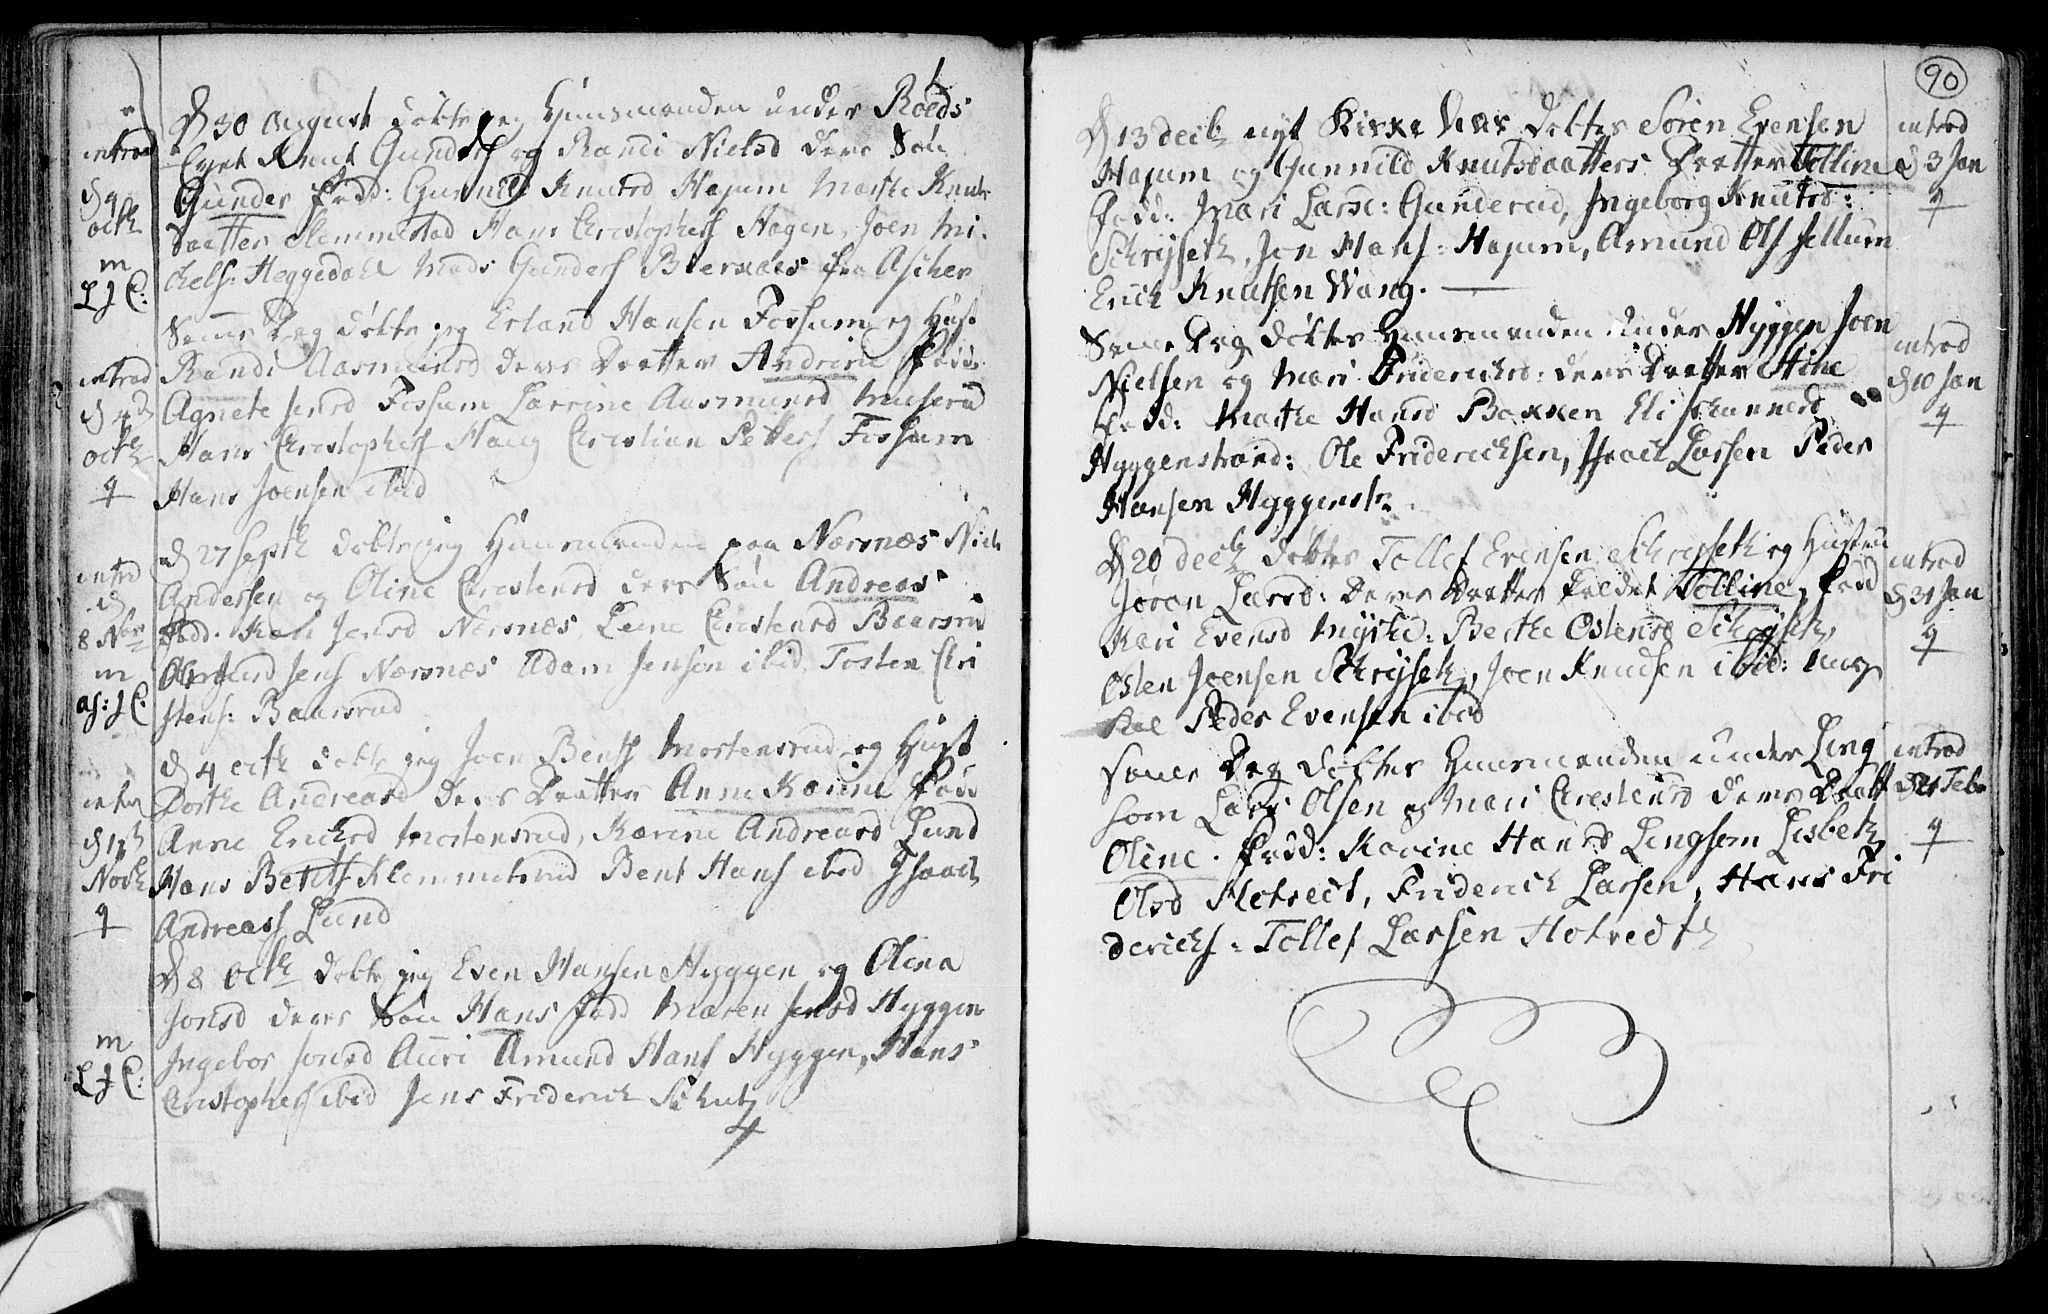 D 30 August døbte jeg Huusmanden under Roeds
Eyet Knut Gunders: og Randi Nielsd deres Søn
Gunder Fadd: Gunnild Knutsd Hajum Marthe Knuts
daatter Slemmestad Hans Christophers Hagen, Joen Mi-
chels: Heggedahl Mads Gunders Biernæs fra Ascher
introd
d 4
octb
m
L J C:
Samme Dag døbte jeg Erland Hansen Fossum og Hust
Randi Aasmunsd deres Daatter Andrine Fadd:
Agnete Jensd Fossum Karrine Aasmunsd Muserud
Hans Christophers Haug Christian Petters Fossum
Hans Joensen ibid
introd
d 4
octb
q
d 27 Septb døbte jeg Huusmanden paa Nærsnæs Niels
Andersen og Oline Christensd deres Søn Andreas
Fadd. Kari Jensd Nærsnæs, Lene Christensd Baarsrud
Jens Nærsnæs Adam Jensen ibid. Tosten Chri
stens: Baarsrud
introd
d
8 Nov
m
as: J C:
d 4 octb døbte jeg Joen Bents Mortensrud og Hust
Dorthe Andreasd deres Daatter Anne Karine Fadd
Anne Erichsd Mortensrud, Karine Andreasd Lund
Hans Bents Klemmetsrud Bent Hans ibid Isaach
Andreass Lund
introd
d
Novb
q
D 8 Octb døbte jeg Even Hansen Hyggen og Olena
Jonsd deres Søn Hans Fadd Maren Jensd Hyggen
Ingebor Jonsd Auri Amund Hans Hyggen, Hans
Christophers ibid Jens Friderich Schutz
m
L J C:
4
90
D 13 decb: nyt Kirke Aar døbtes Søren Evensen
Hajum og Gunnild Knutsdaatters Daatter Tolline
Fadd: Mari Larsd: Gunderud, Ingeborg Knutsd:
Schrijseth, Jon Hans: Hajum, Amund Ols Jellum
Erich Knutsen Wang.
introd
d 3 Jan
q
Samme Dag døbtes Huusmanden under Hyggen Joen
Nielsen og Mari Friderichsd: deres Daatter Stine
Fadd: Marthe Hansd Bakken Eli Johannesd
Hyggenstrand: Ole Friderichsen, Isach Larsen Peder
Hansen Hyggenstr
introd
d 10 Jan
q
D 20 decb døbtes Tollef Evensen Schrejseth og Hustru
Jøran Larsd: deres Daatter kaldet Tolline, Fadd
Kari Evensd Myhre: Berthe Ostensd Schrijseth,
Osten Joensen Schrijseth, Joen Knudsen ibid: ung
Karl Peder Evensen ibid
introd
d 31 Jan
q
Samme Dag døbtes Huusmanden under Ling
som Lars Olsen og Mari Christensd deres Daatt
Oline. Fadd: Karine Hansd Lingsom Lisbeth
Olsd Hotvedt, Friderich Larsen, Hans Fri
derichs: Tollef Larsen Hotvedt
introd
d 21 Febr
q